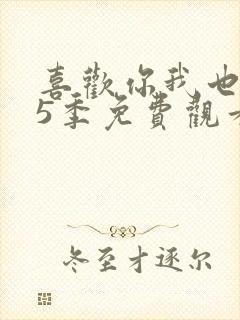 喜歡你我也
5季免費觀看
冬至才逐尔